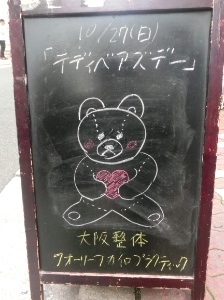 10/27(日)
「テディベアズデー」
大阪整体
クオーリーフカイロプラクティック